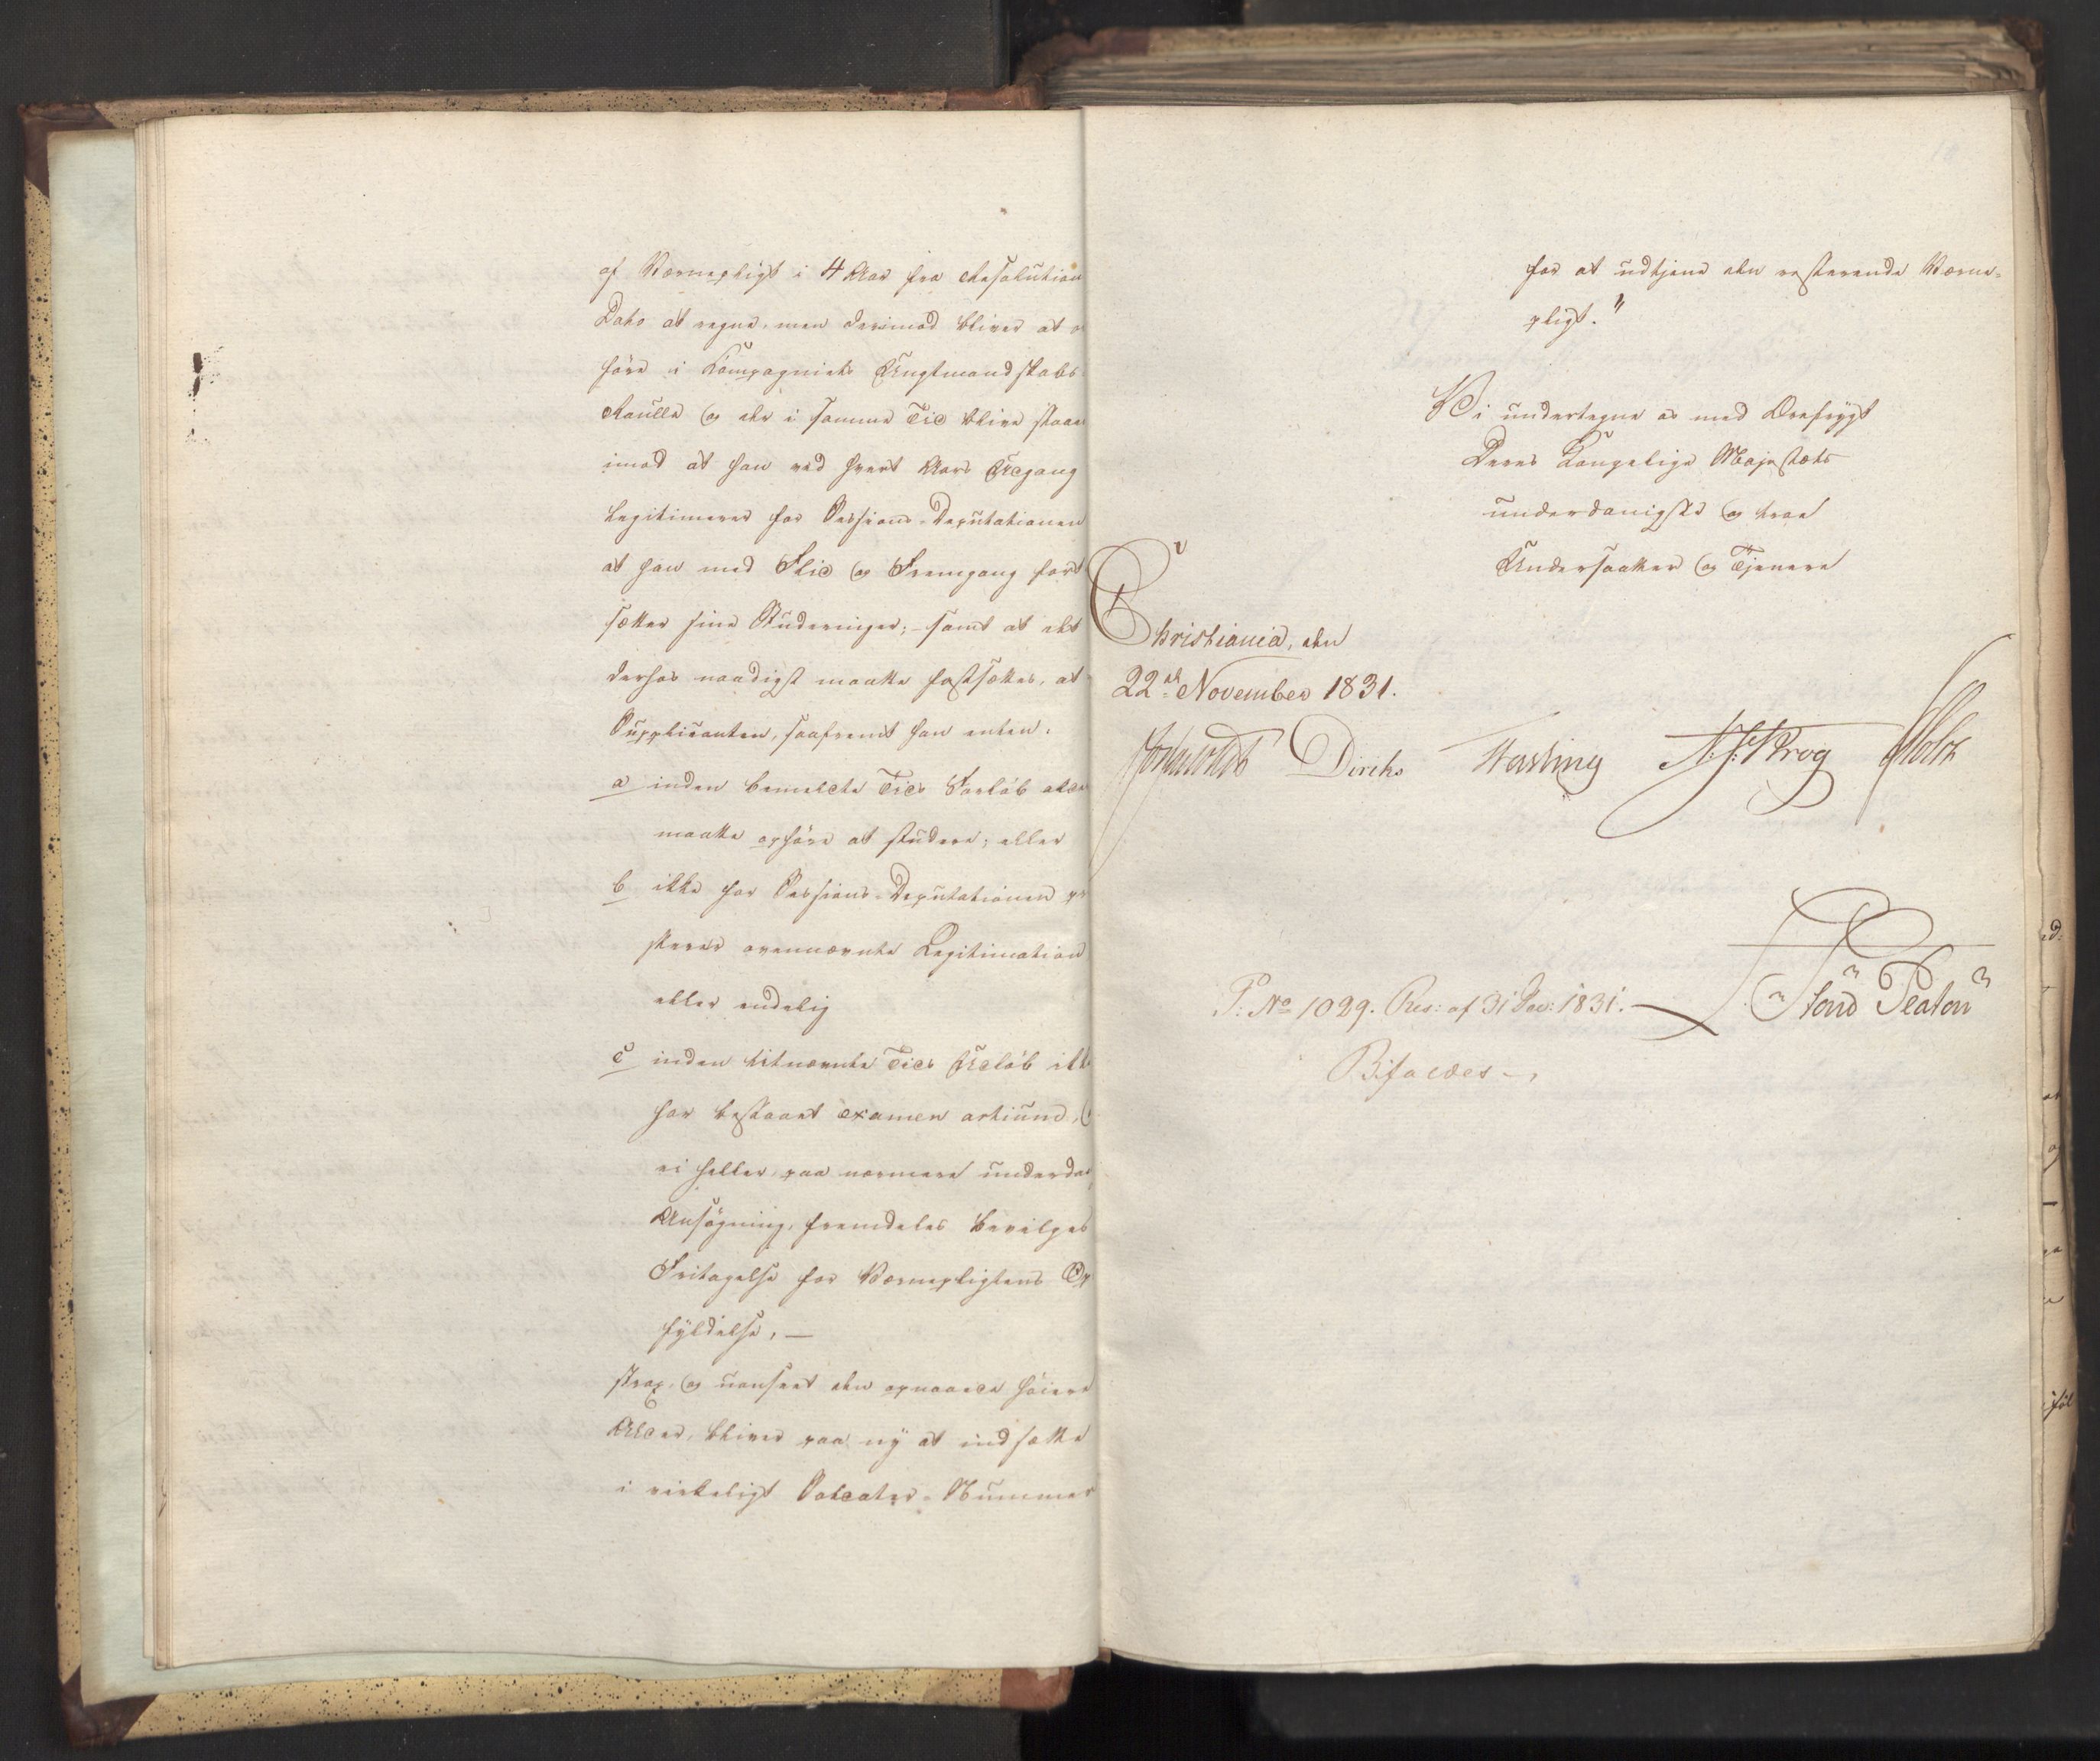 af Værnepligt i 4 Aar fra Resolution
Dato at regne, men derimod bliver at o
føre i Compagniets Ungtmandskabs
Roulle og der i samme Tid blive staae
imod at han ved hvert Aars Udgang
legitimerer for Sessions-Deputationen
at han med Flid og Fremgang fort
sætter sine Studeringer; samt at det
derhos naadigst maatte fastsættes, at
Supplicanten, saafremt han enten:
a inden bemeldte Tids Forløb alde
maatte ophøre at studere; eller
b ikke for Sessions-Deputationen pr
sterer ovennævnte Legitimation
eller endelig
c inden bitnævnte Tids Udløb ikk
har bestaaet examen artium,
ei heller, paa nærmere underda
Ansøgning, fremdeles bevilges
Fritagelse for Værnepligtens Op
fyldelse, —
strax, og uanseet den opnaaede høiere
Alder, bliver paa ny at indsætte
i virkeligt Soldater-Nummer
for at udtjene den resterende Værne-
pligt."
Vi undertegne os med Ærefrygt
Deres Kongelige Majestæts
underdanigste og troe
Undersaatter og Tjenere
Christiania, den
22de November 1831.
Diriks Fasting N. J. Krog Holst
P: No 1029. Res: af 31 Dec: 1831. —
Bifaldes —